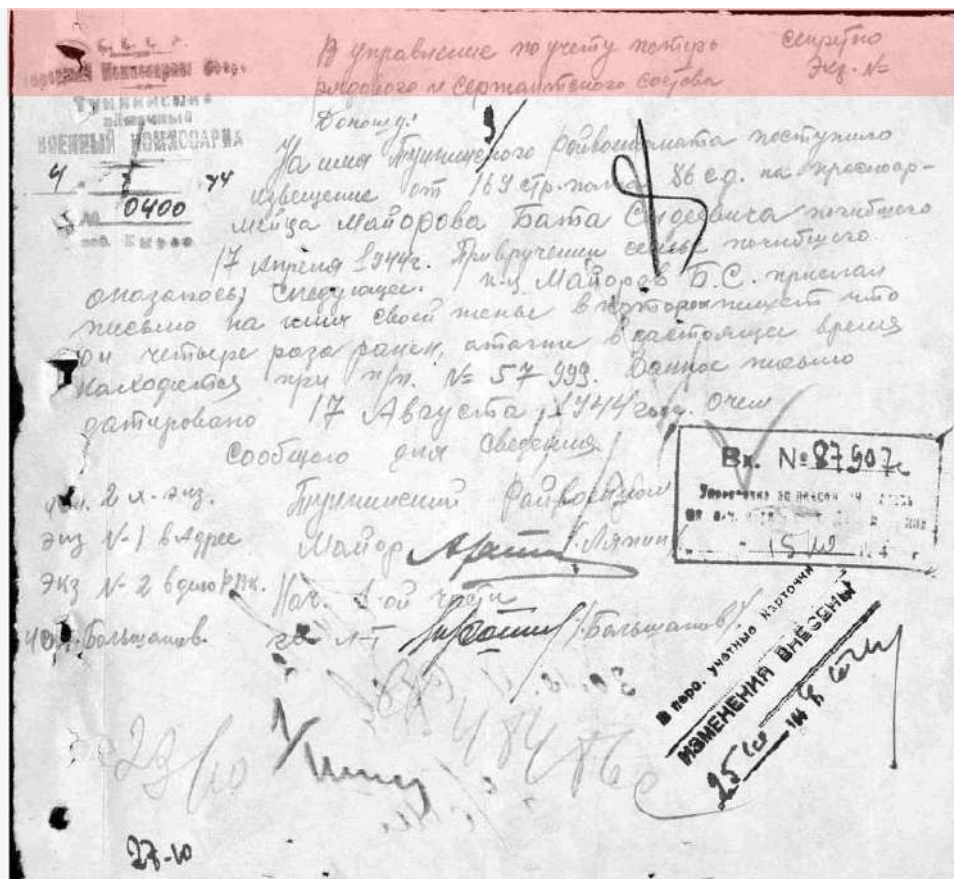 С.С.С.Р.
Народный Комиссариат Оборо
Тункинский
районный
ВОЕННЫЙ КОМИССАРИА
44
№ 0400
сов. Кырен
В управление по учету потерь
рядового и сержантского состава
секретно
Экз. №
Доношу:
На имя Тункинского Райвоенкомата поступило
извещение от 169 стр. полка 86 с.д. на красноар-
мейца Майорова Бата погибшего
17 апреля 1944г. При вручении семье погибшего
оказалось следующее. Майоров Б.С. прислал
письмо на имя своей жены в котором пишет что
он четыре раза ранен, в настоящее время
находится при п/п. № 57999. Данное письмо
датировано 17 Августа 1944 году. О чем
сообщаю для сведения
2 х. экз.
экз № 1 в адрес
экз № 2 в дело РВК.
Большаков.
Тункинский Райвоенком
Майор
Нач. 2-ой части
л-т /Большаков/
Вх. № 87907с
15
В перс. учетные карточки
ИЗМЕНЕНИЯ ВНЕСЕНЫ
25
23/10
48486с
27-10